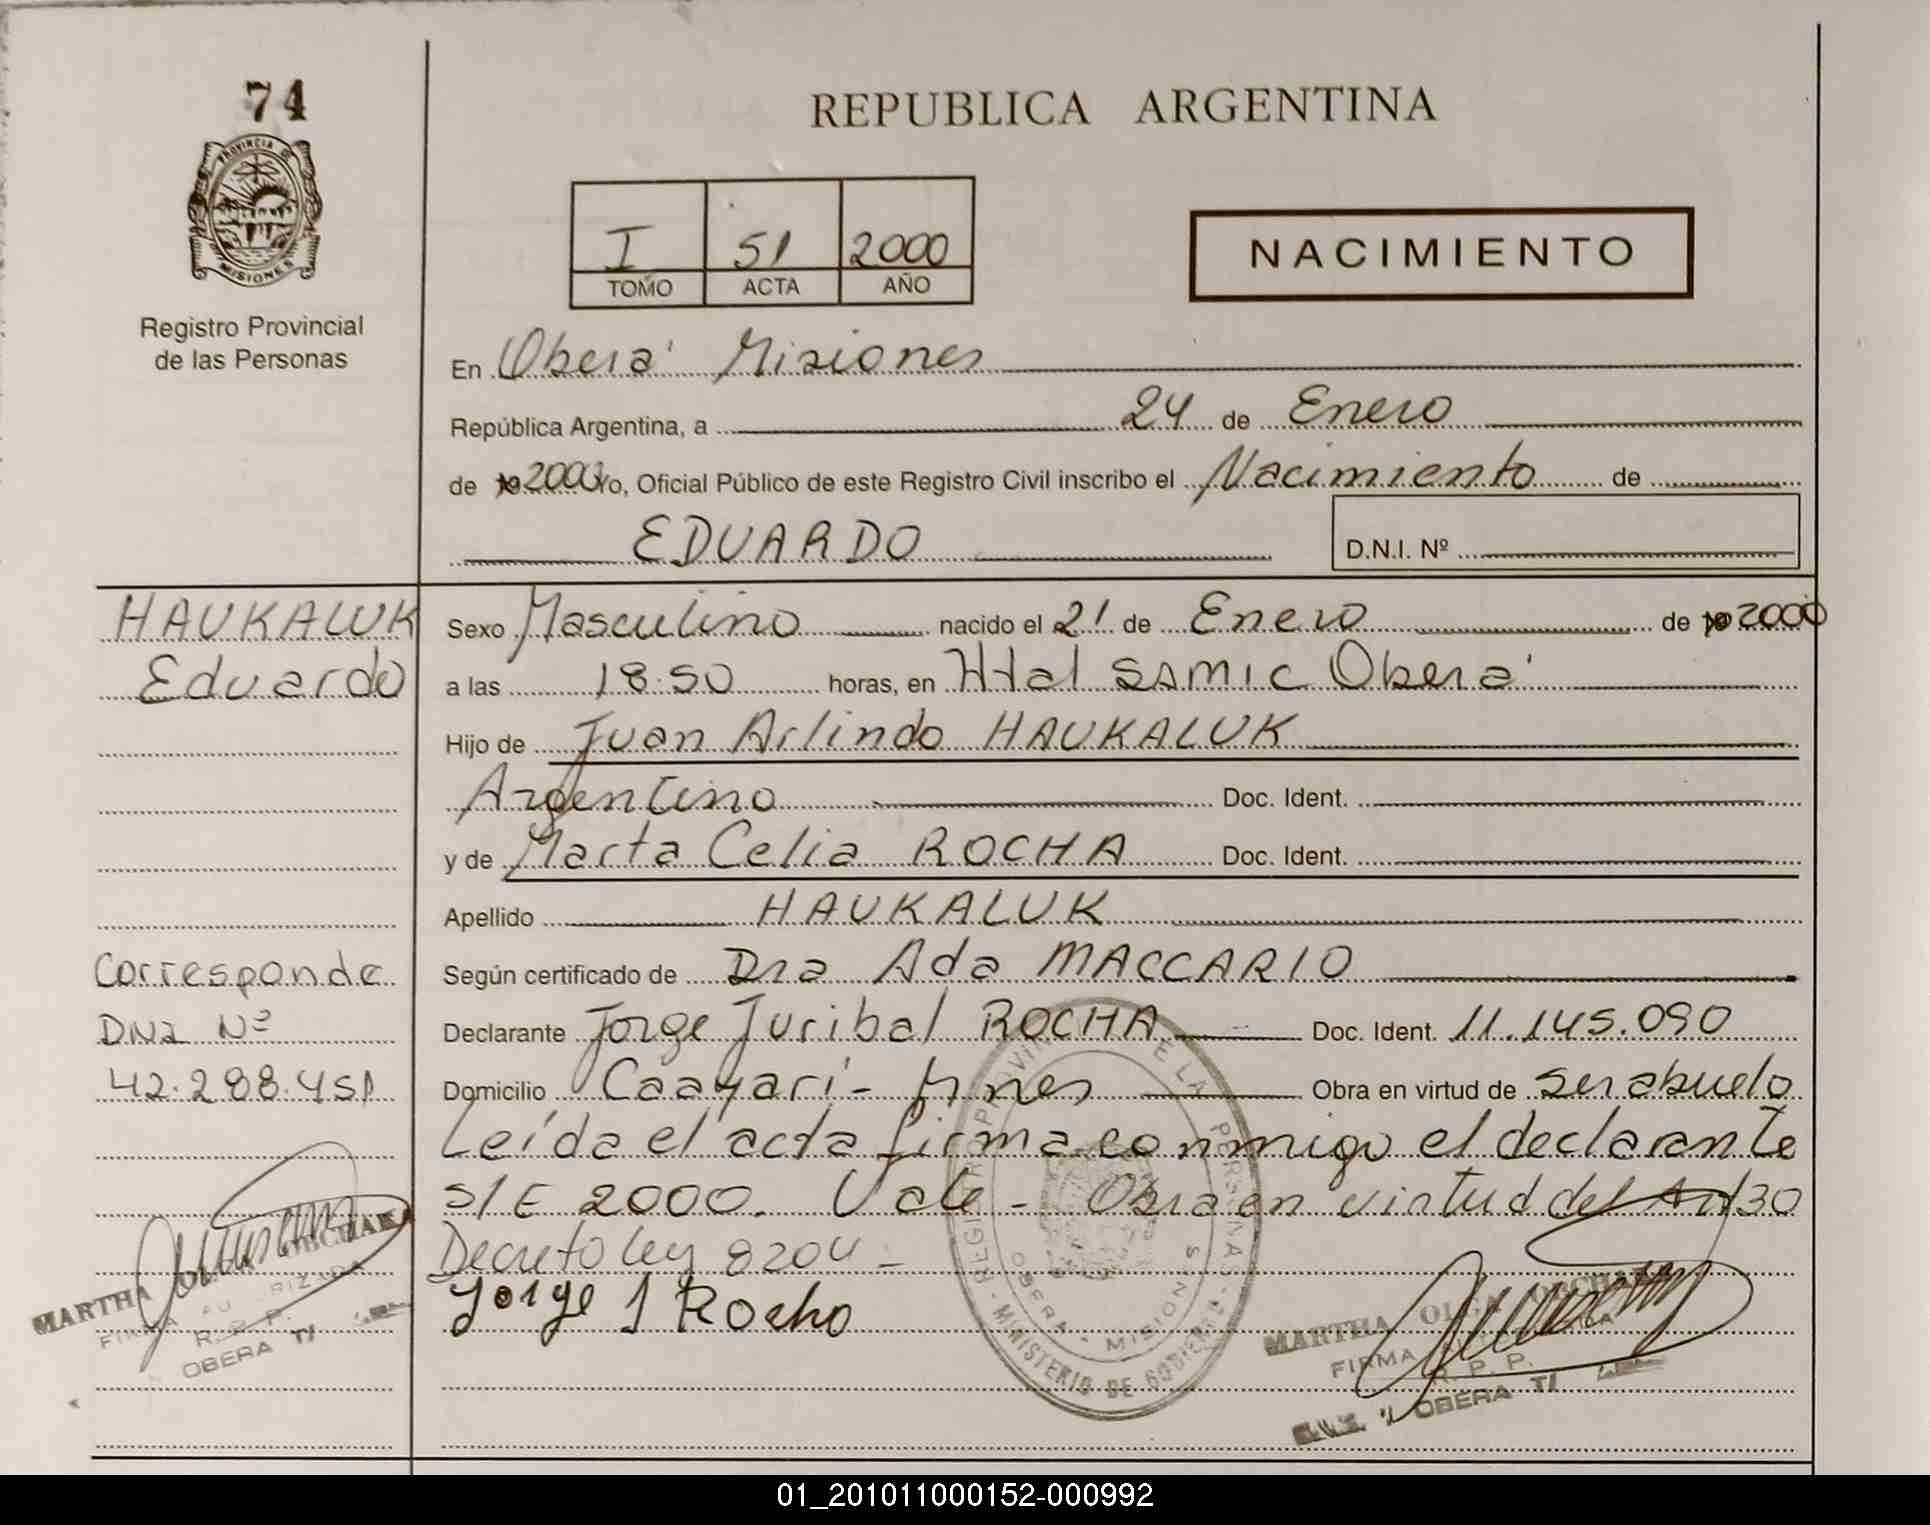 74
REPUBLICA ARGENTINA
PROVINCIA D
MISIONES
Registro Provincial
de las Personas
I 51 2000
TOMO ACTA AÑO
NACIMIENTO
En Oberá Misiones
República Argentina, a 24 de Enero
de 19 2000 Yo, Oficial Público de este Registro Civil inscribo el Nacimiento de
EDUARDO
D.N.I. Nº
HAUKALUK
Eduardo
Sexo Masculino nacido el 21 de Enero de 19 2000
a las 18.50 horas, en Htal SAMIC Oberá
Hijo de Juan Arlindo HAUKALUK
Argentino Doc. Ident.
y de Marta Celia ROCHA Doc. Ident.
Apellido HAUKALUK
Corresponde
DNI Nº
42.288.451
Según certificado de Dra Ada MACCARIO
Declarante Jorge Juribal ROCHA Doc. Ident. 11.145.090
Domicilio Caayarí - Mnes Obra en virtud de ser abuelo
Leída el acta firma conmigo el declarante
S/E 2000. Vale - Obra en virtud del Art 30
Decreto ley 8204 -
Jorge J Rocho
MARTHA
FIRMA
R. P. P.
OBERA
REGISTRO PROVINCIAL DE LAS PERSONAS
MINISTERIO DE GOBIERNO
OBERA - MISIONES
MARTHA OLGA
FIRMA
R. P. P.
OBERA
01_201011000152-000992